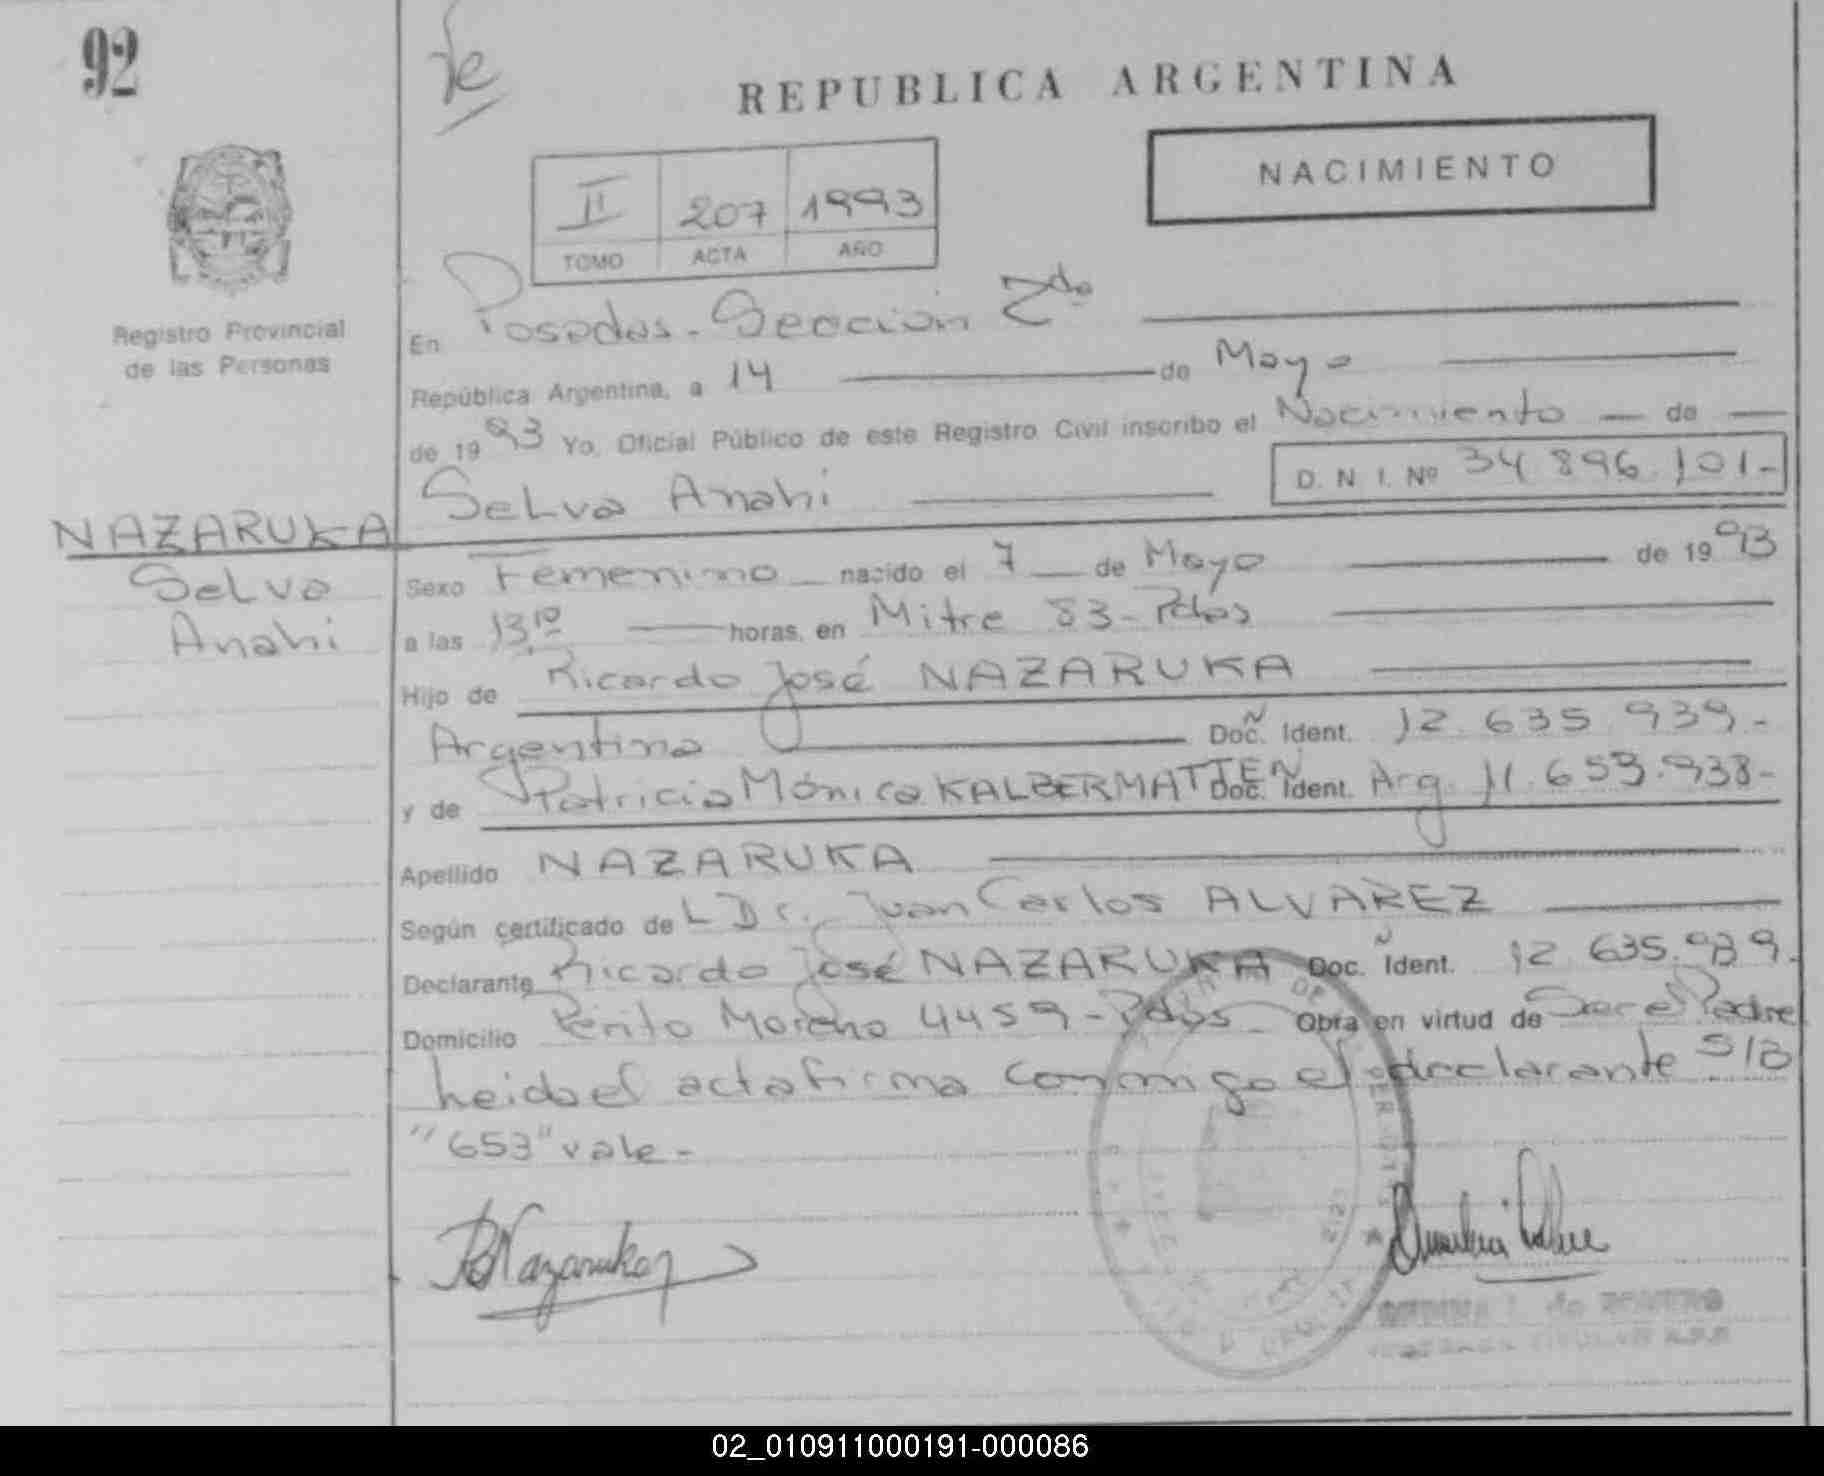 92
REPUBLICA ARGENTINA
NACIMIENTO
II 207 1993
TOMO ACTA AÑO
Registro Provincial
de las Personas
En Posadas - Sección 2da
República Argentina, a 14 de Mayo
de 1993 Yo, Oficial Público de este Registro Civil inscribo el Nacimiento de
Selva Anahi D. N. I. Nº 34 896.101-
NAZARUKA
Selva
Anahi
Sexo Femenino nacido el 7 de Mayo de 1993
a las 13,10 horas, en Mitre 83 - Pdas
Hijo de Ricardo José NAZARUKA
Argentina Doc. Ident. 12.635.939-
y de Patricia Mónica KALBERMATTEN Doc. Ident. Arg. 11.653.938-
Apellido NAZARUKA
Según certificado del Dr. Juan Carlos ALVAREZ
Declarante Ricardo José NAZARUKA Doc. Ident. 12.635.939.
Domicilio Perito Moreno 4459 - Pdas Obra en virtud de Ser el Padre
Leida el acta firma conmigo el declarante S/B
"653" vale -
de ROMERO
02_010911000191-000086